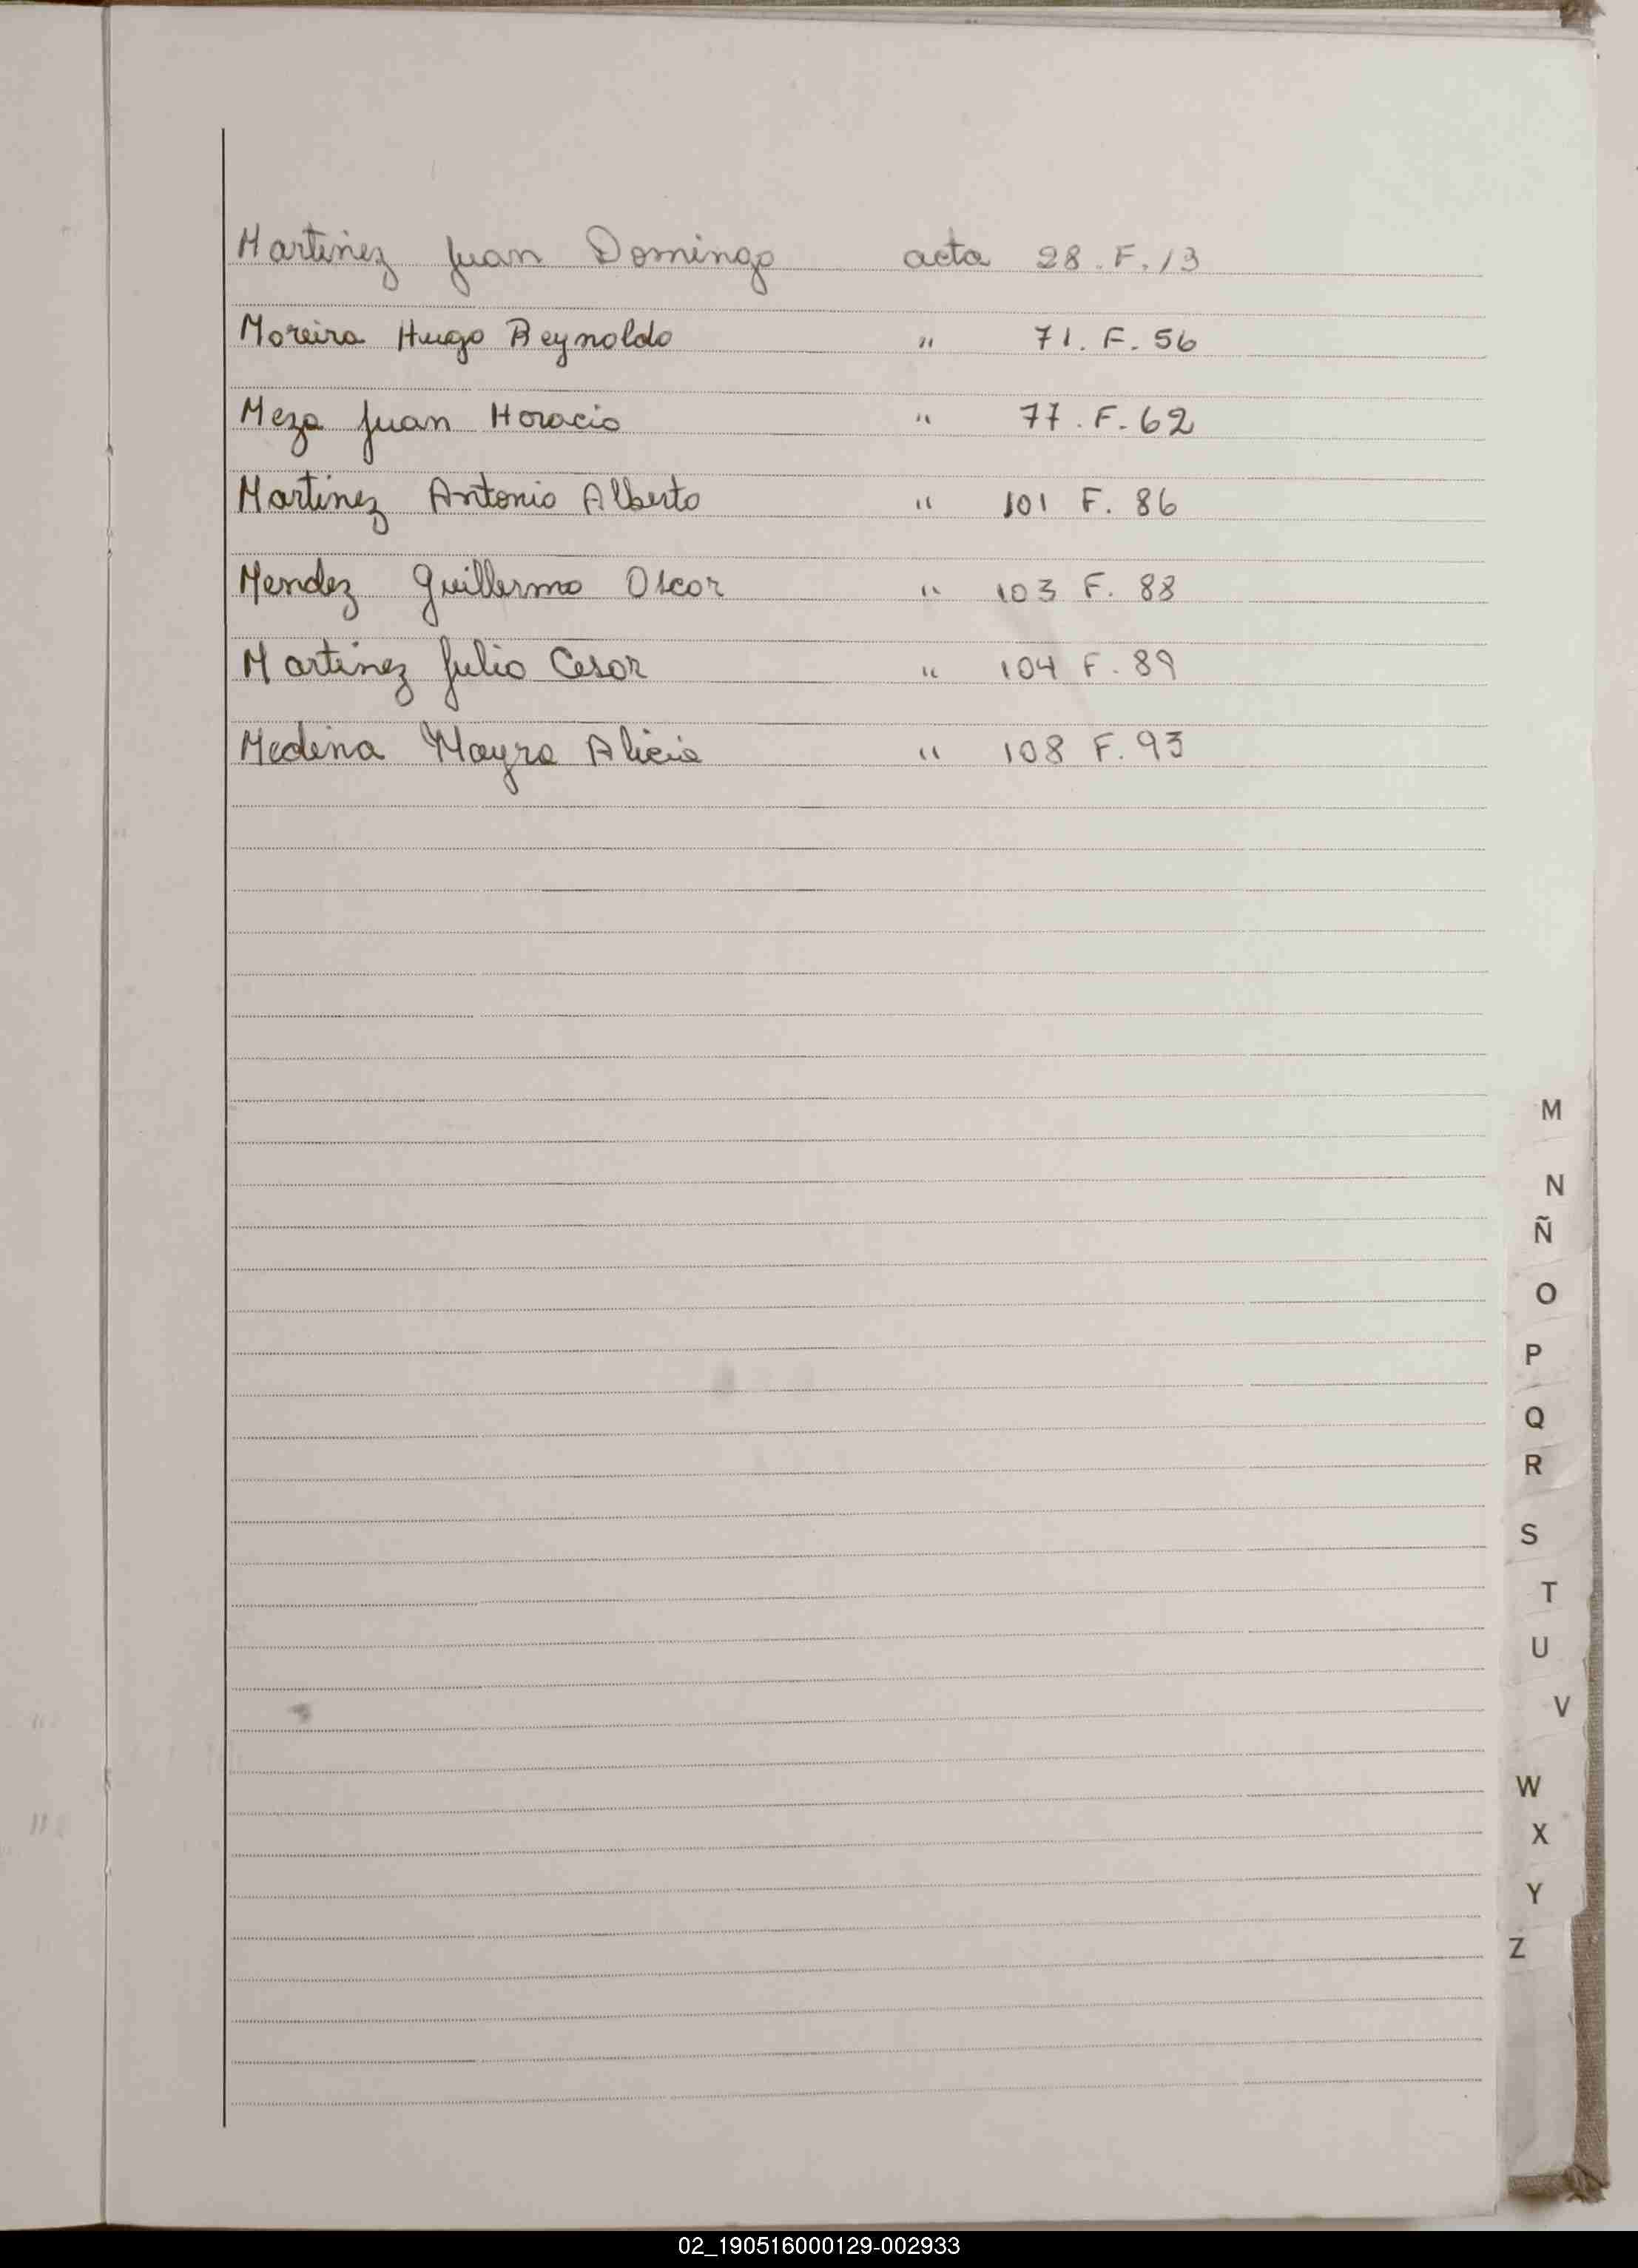 Martinez Juan Domingo acta 28. F. 13
Moreira Hugo Reynoldo " 71. F. 56
Meza Juan Horacio " 77. F. 62
Martinez Antonio Alberto " 101 F. 86
Mendez Guillermo Oscar " 103 F. 88
Martinez Julio Cesar " 104 F. 89
Medina Mayra Alicia " 108 F. 93
M
N
Ñ
O
P
Q
R
S
T
U
V
W
X
Y
Z
02_190516000129-002933